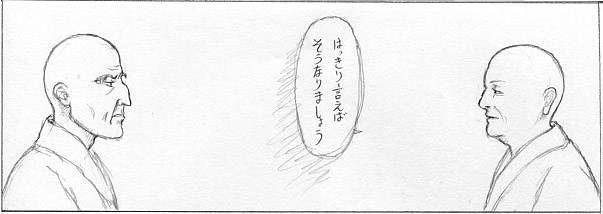 はっきり言えば
そうなりましょう